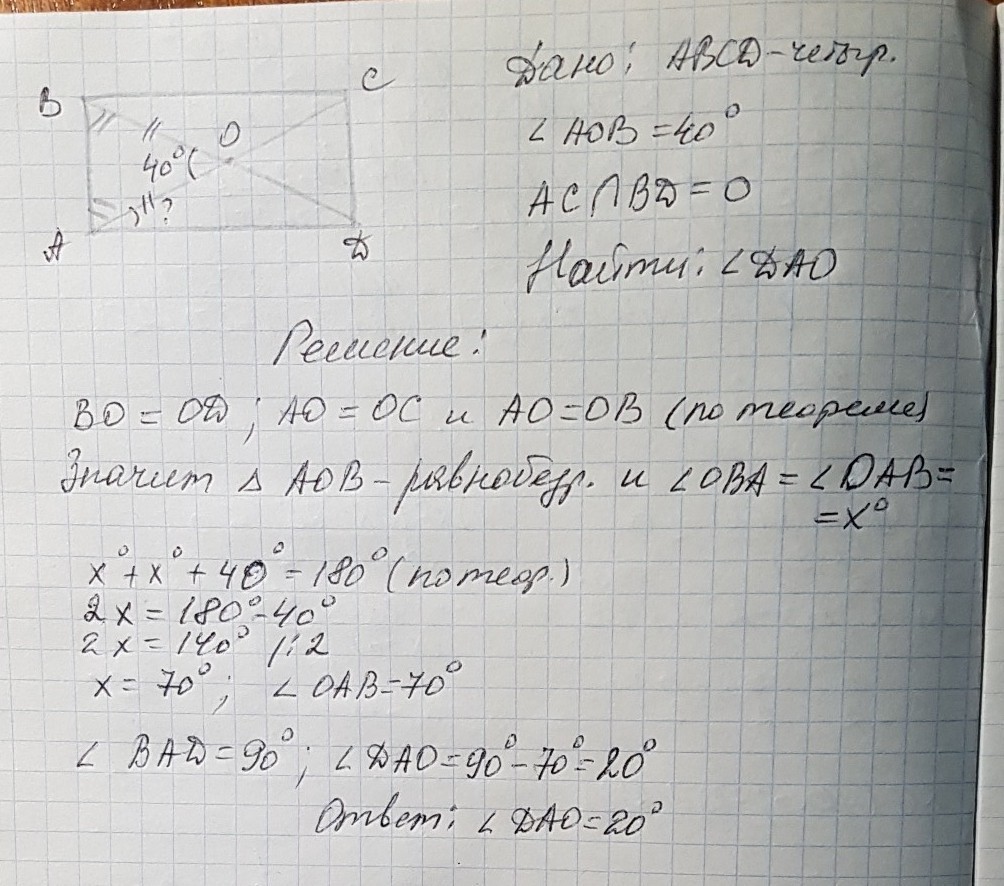 B
C
O
40°
?
A
D
Дано: ABCD-четыр.
∠ AOB = 40°
AC∩BD = O
Найти: ∠DAO
Решение:
BO = OD; AO = OC и AO = OB (по теореме)
Значит △ AOB - равнобедр. и ∠OBA = ∠OAB =
= x°
x° + x° + 40° = 180° (по теор.)
2x = 180° - 40°
2x = 140° |:2
x = 70°; ∠OAB = 70°
∠ BAD = 90°; ∠DAO = 90° - 70° = 20°
Ответ: ∠DAO = 20°